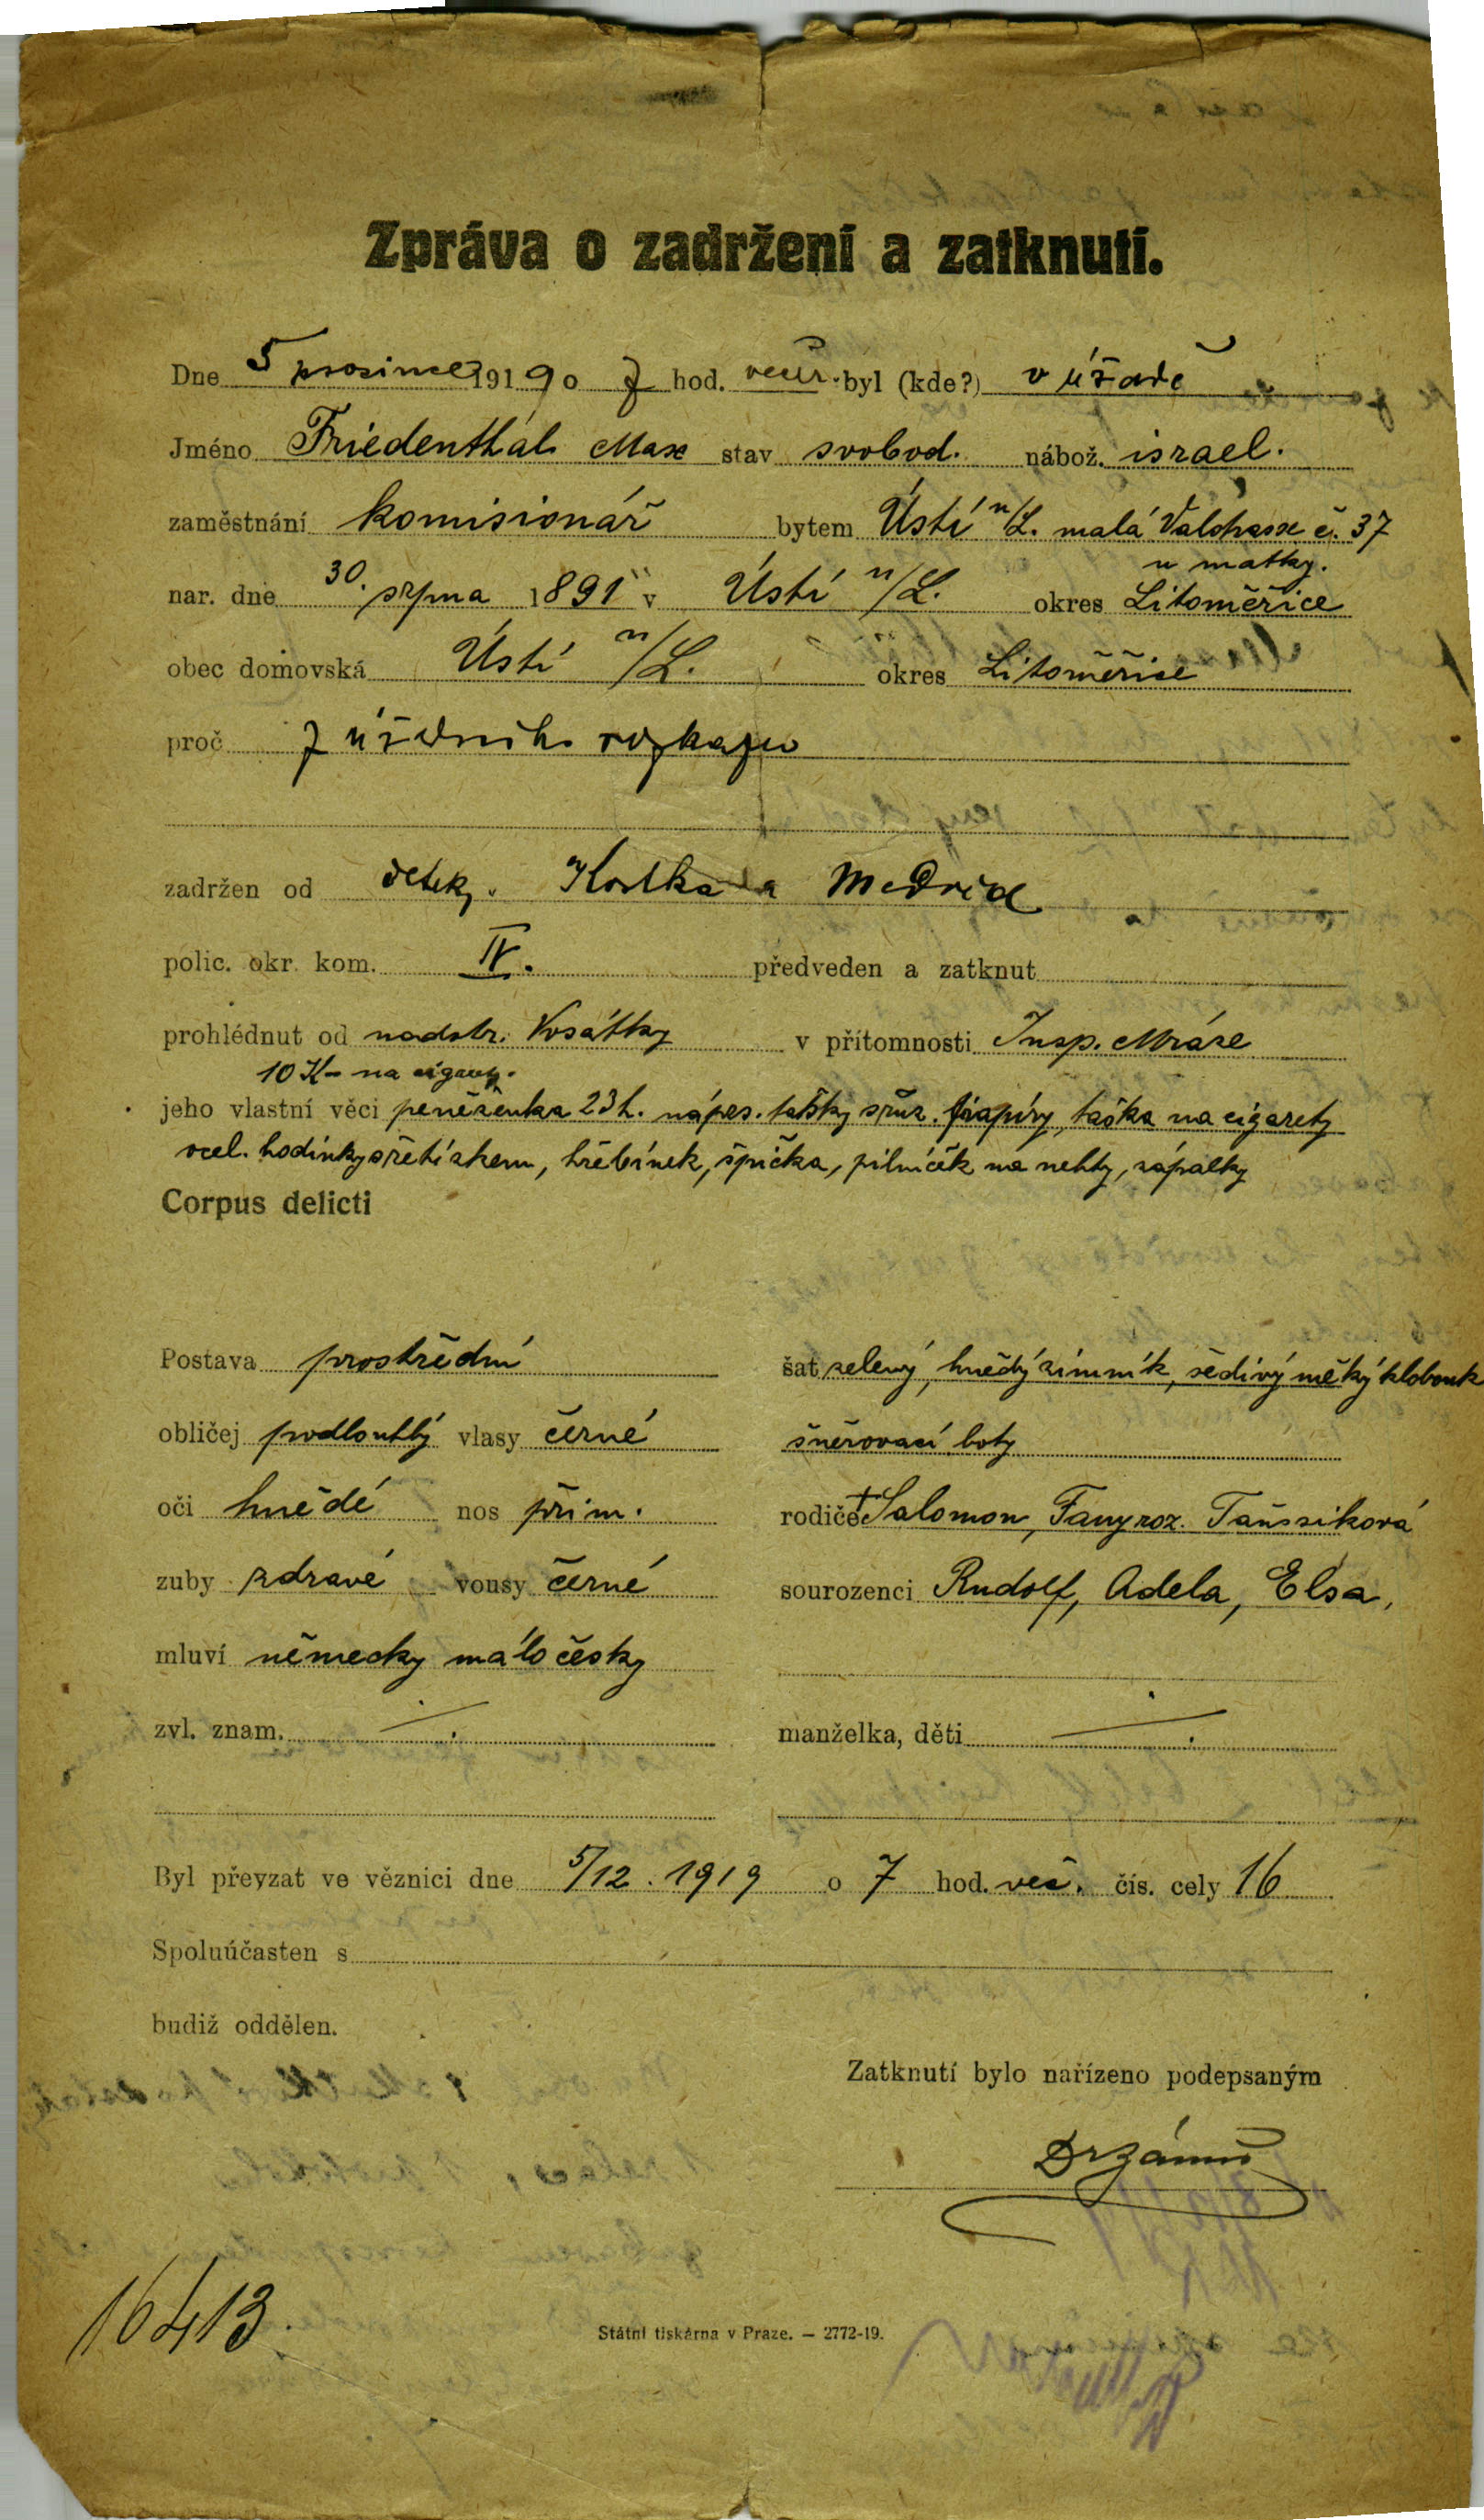 Zpráva o zadržení a zatknutí.
Dne 5 prosince 1919 o 7 hod. večer. byl (kde?) v úřadě
Jméno Friedenthal Max stav svobod. nábož. israel.
zaměstnání komisionář bytem Ústí n/L. malá č. 37
u matky.
nar. dne 30. srpna 1891 v Ústí n/L. okres Litoměřice
obec domovská Ústí n/L. okres Litoměřice
proč z úředního rozkazu
zadržen od detek. Kostka a
polic. okr. kom. IV. předveden a zatknut
prohlédnut od nadstr. Vosátky v přítomnosti Insp. Mráze
10 K – na cigarety.
jeho vlastní věci peněženka 23 h. nápes. tašky papíry, taška na cigarety
ocel. hodinky s řetízkem, hřebínek, špička, pilníček na nehty, zápalky
Corpus delicti
Postava prostřední šat zelený, hnědý zimník, šedivý měký klobouk
obličej podlouhlý vlasy černé šněrovací boty
oči hnědé nos přim. rodiče †Salomon, Fany roz.
zuby zdravé vousy černé sourozenci Rudolf, Adela, Elsa,
mluví německy málo česky
zvl. znam. —. manželka, děti —.
Byl převzat ve věznici dne 5/12. 1919 o 7 hod. več. čís. cely 16
Spoluúčasten s
budiž oddělen.
Zatknutí bylo nařízeno podepsaným
16413.
Státní tiskárna v Praze. — 2772-19.